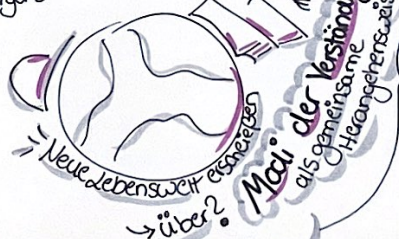 Neue Lebenswelt erschließen
→ Über?
Modi der Verständ
als gemeinsame
Herangehensweis